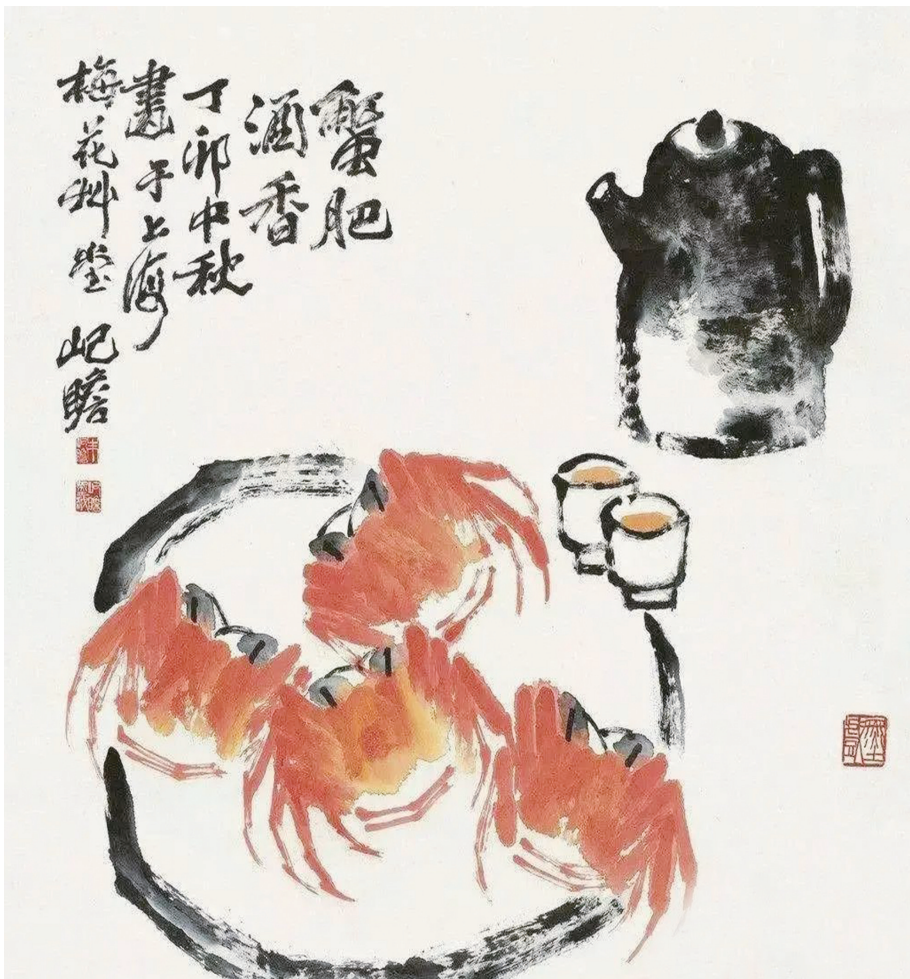 蟹肥
酒香
丁卯中秋
畫于上海
梅花艸堂 屺瞻